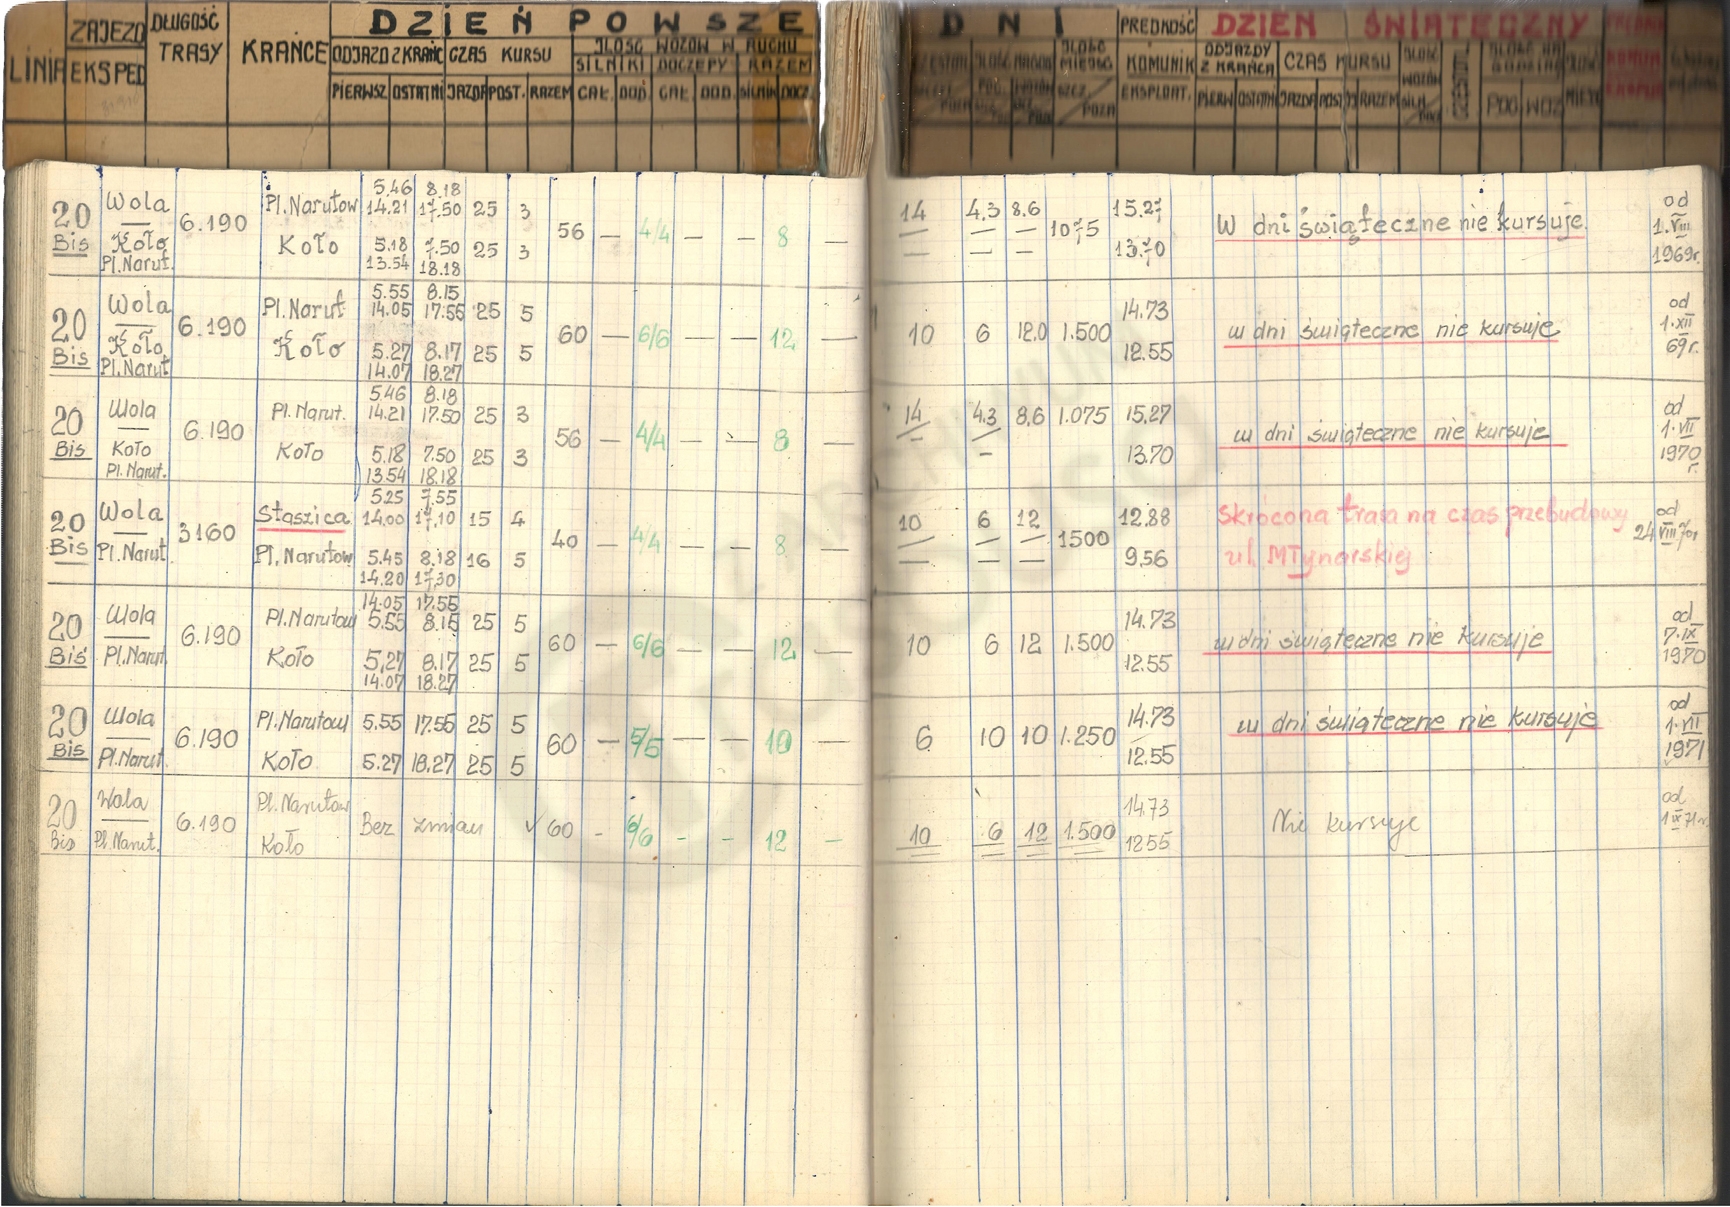 LINIA ZAJEZD EKSPED DŁUGOŚĆ TRASY KRAŃCE DZIEŃ POWSZE
ODJAZD Z KRAŃC CZAS KURSU ILOŚĆ WOZÓW W RUCHU
SILNIKI DOCZEPY RAZEM
PIERWSZ OSTATNI JAZDA POST. RAZEM CAŁ. DOD. CAŁ. DOD. SILNIK DOCZ.
DNI PRĘDKOŚĆ KOMUNIK EKSPLOAT. DZIEŃ ŚWIĄTECZNY
ODJAZDY Z KRAŃCA CZAS KURSU
PIERW OSTATNI JAZDA POST RAZEM
20 Bis Wola Koło Pl.Narut. 6.190
Pl.Narutow 5.46 8.18 14.21 17.50 25 3
Koło 5.18 7.50 13.54 18.18 25 3
56 — 4/4 — — 8 —
14 4.3 8.6 1075 15.27 13.70 W dni świąteczne nie kursuje od 1.VIII 1969r.
20 Bis Wola Koło Pl.Narut 6.190
Pl.Narut 5.55 8.15 14.05 17.55 25 5
Koło 5.27 8.17 14.07 18.27 25 5
60 — 6/6 — — 12 —
10 6 12.0 1.500 14.73 12.55 w dni świąteczne nie kursuje od 1.XII 69r.
20 Bis Wola Koło Pl.Narut. 6.190
Pl.Narut. 5.46 8.18 14.21 17.50 25 3
Koło 5.18 7.50 13.54 18.18 25 3
56 — 4/4 — — 8 —
14 4.3 8.6 1.075 15.27 13.70 w dni świąteczne nie kursuje od 1.VII 1970 r.
20 Bis Wola Pl.Narut 3160
Staszica 5.25 7.55 14.00 17.10 15 4
Pl.Narutow 5.45 8.18 14.20 17.30 16 5
40 — 4/4 — — 8 —
10 6 12 1500 12.88 9.56 Skrócona trasa na czas przebudowy ul. Młynarskiej od 24 VIII 70r
20 Bis Wola Pl.Narut. 6.190
Pl.Narutow 14.05 17.55 5.55 8.15 25 5
Koło 5.27 8.17 14.07 18.27 25 5
60 — 6/6 — — 12 —
10 6 12 1.500 14.73 12.55 w dni świąteczne nie kursuje od 7.IX 1970
20 Bis Wola Pl.Narut 6.190
Pl.Narutow 5.55 17.55 25 5
Koło 5.27 18.27 25 5
60 — 5/5 — — 10 —
6 10 10 1.250 14.73 12.55 w dni świąteczne nie kursuje od 1.VII 1971
20 Bis Wola Pl.Narut. 6.190
Pl.Narutow
Koło
Bez zmian 60 - 6/6 - - 12 -
10 6 12 1.500 14.73 12.55 Nie kursuje od 1 IX 71r.